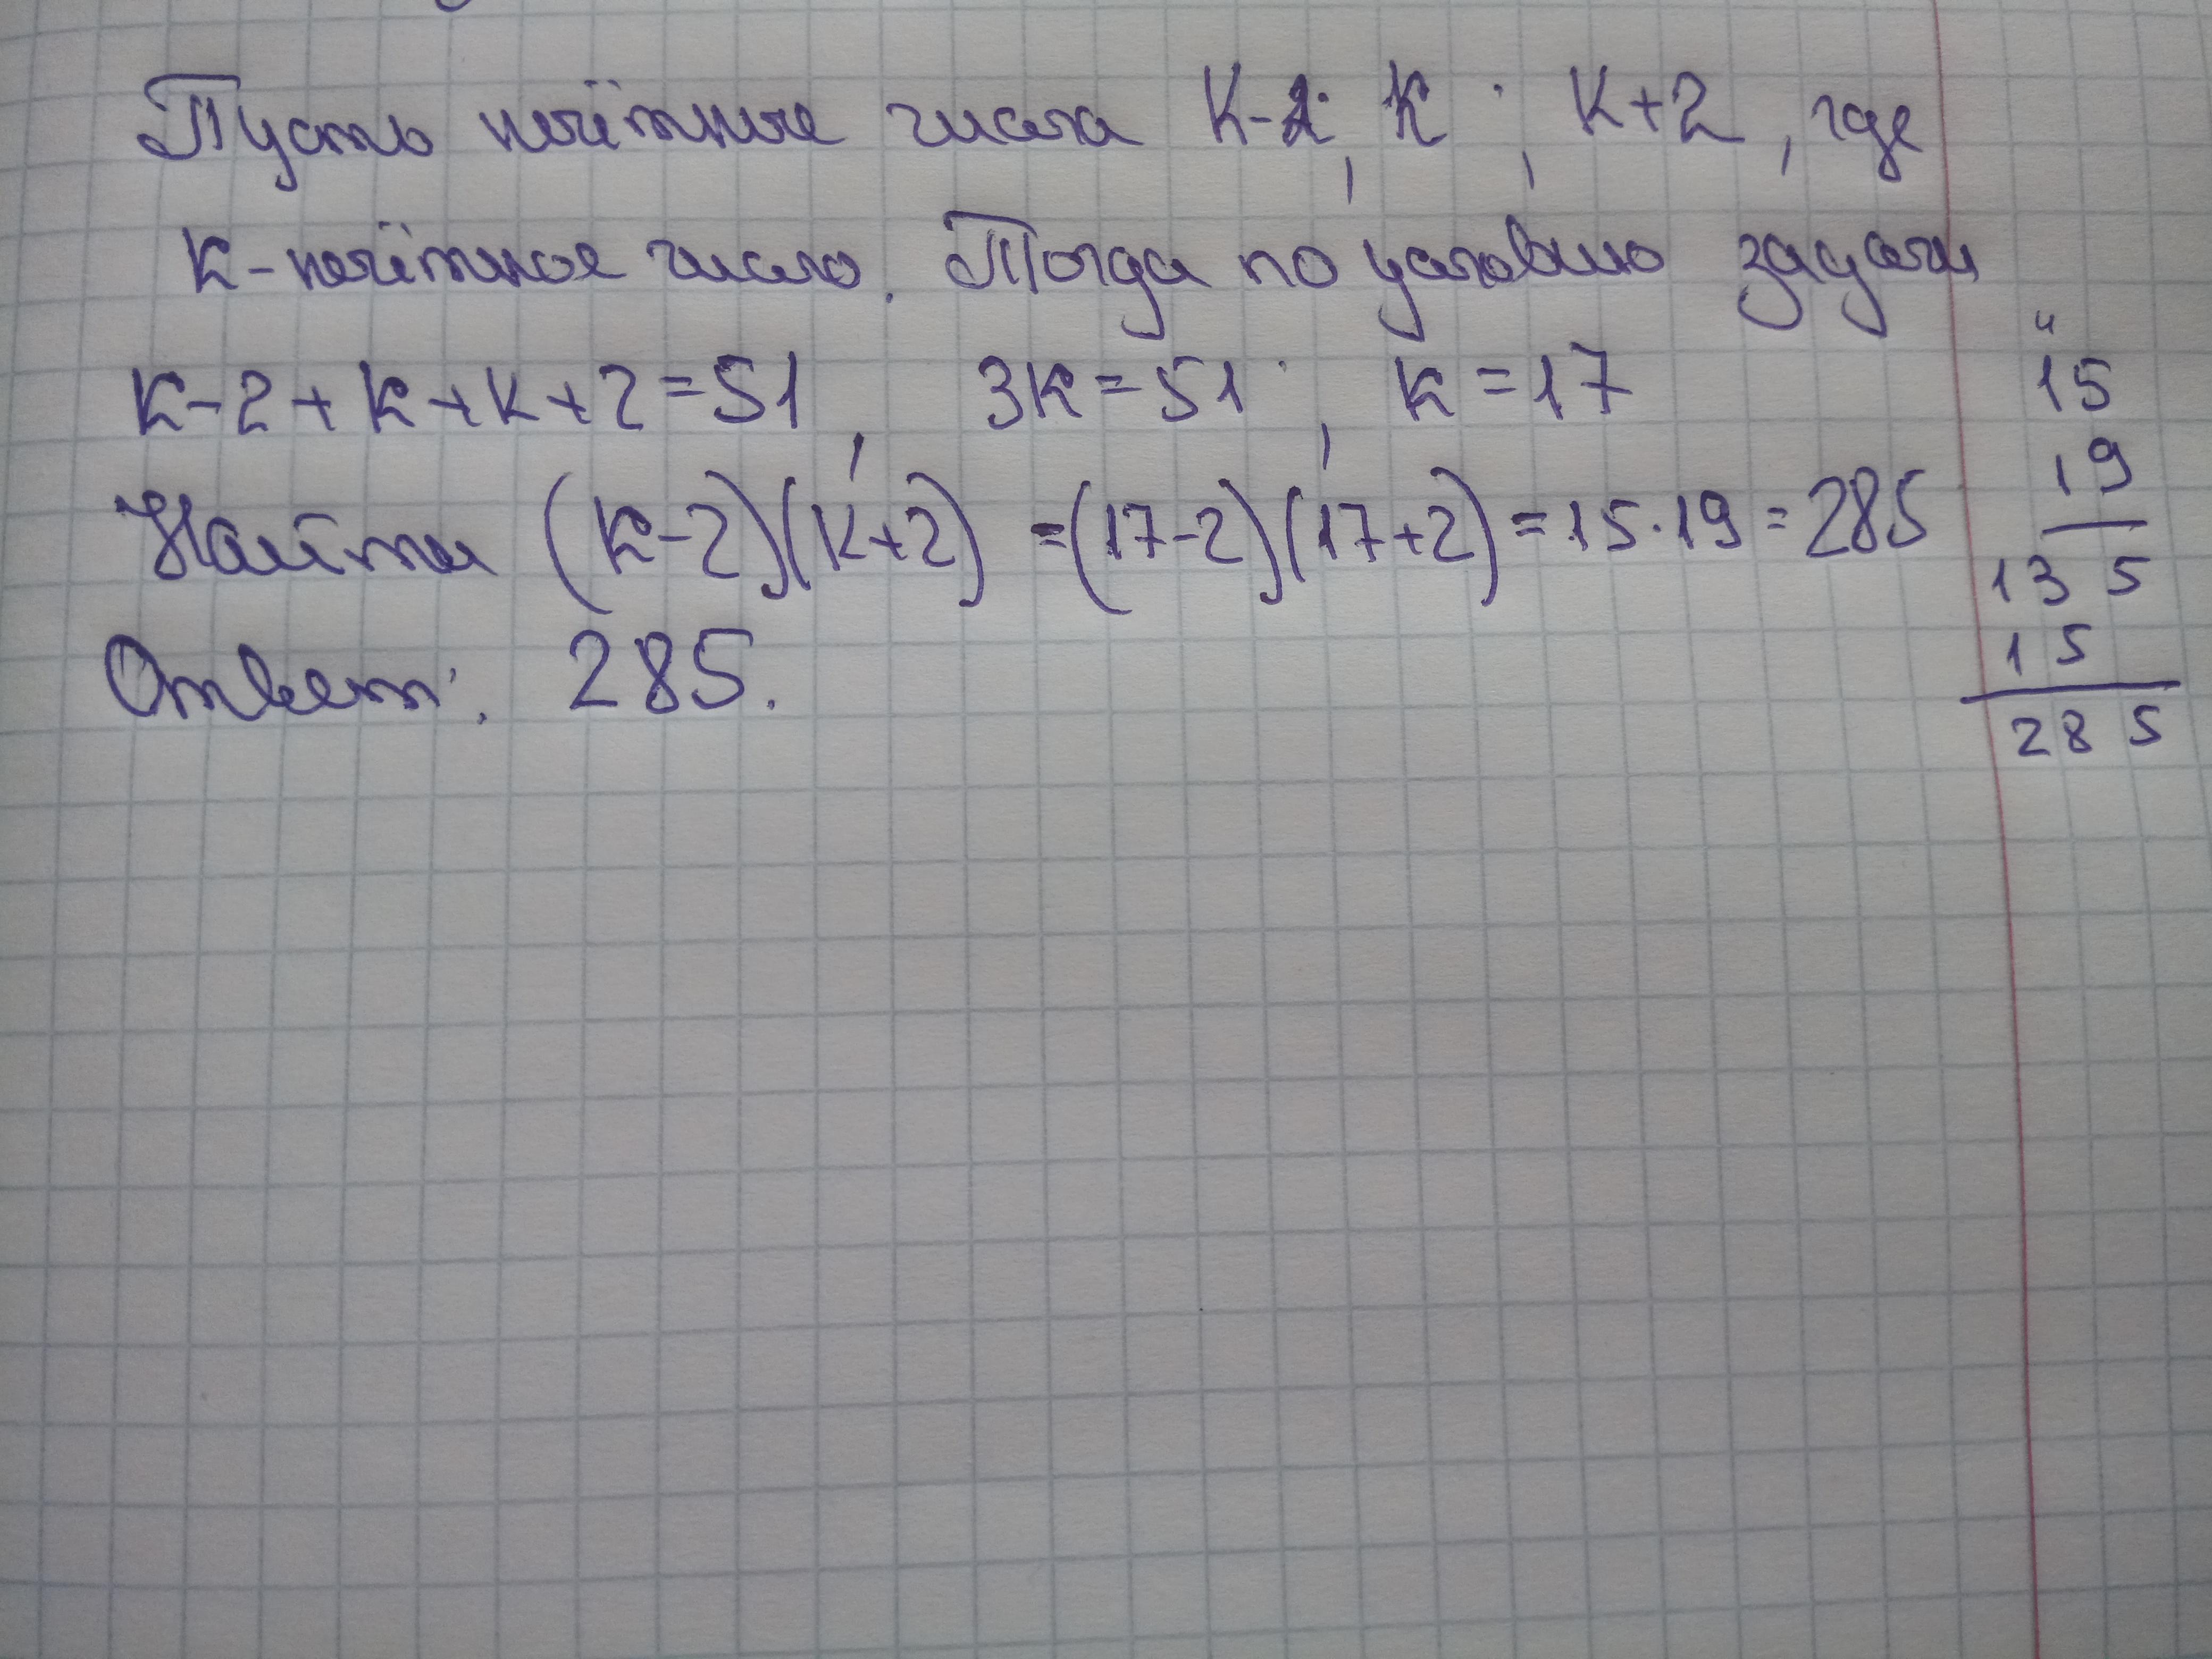 Пусть нечётные числа К-2; К ; К+2, где
К-нечётное число. Тогда по условию задачи
К-2+К+К+2=51, 3К=51, К=17
Найти (К-2)(К+2) =(17-2)(17+2)=15·19=285
Ответ: 285.
4
15
19
135
15
285